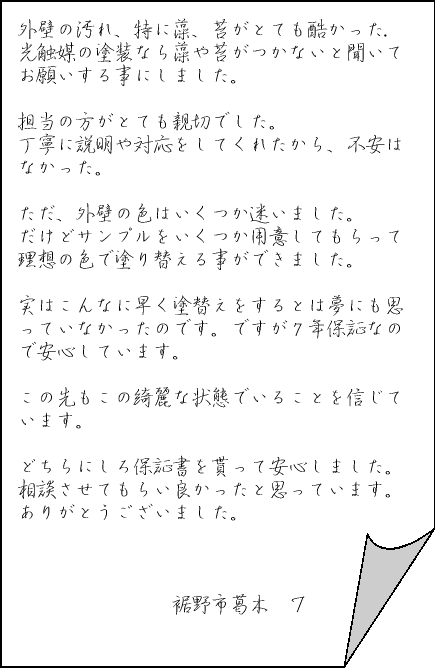 外壁の汚れ、特に藻、苔がとても酷かった.
光触媒の塗装なら藻や苔がつかないと聞いて
お願いする事にしました。
担当の方がとても親切でした。
丁寧に説明や対応をしてくれたから、不安は
なかった。
ただ、外壁の色はいくつか迷いました。
だけどサンプルをいくつか用意してもらって
理想の色で塗り替える事ができました。
実はこんなに早く塗替えをするとは夢にも思
っていなかったのです。ですが7年保証なの
で安心しています。
この先もこの綺麗な状態でいることを信じて
います。
どちらにしろ保証書を貰って安心しました。
相談させてもらい良かったと思っています。
ありがとうございました。
裾野市葛木 7